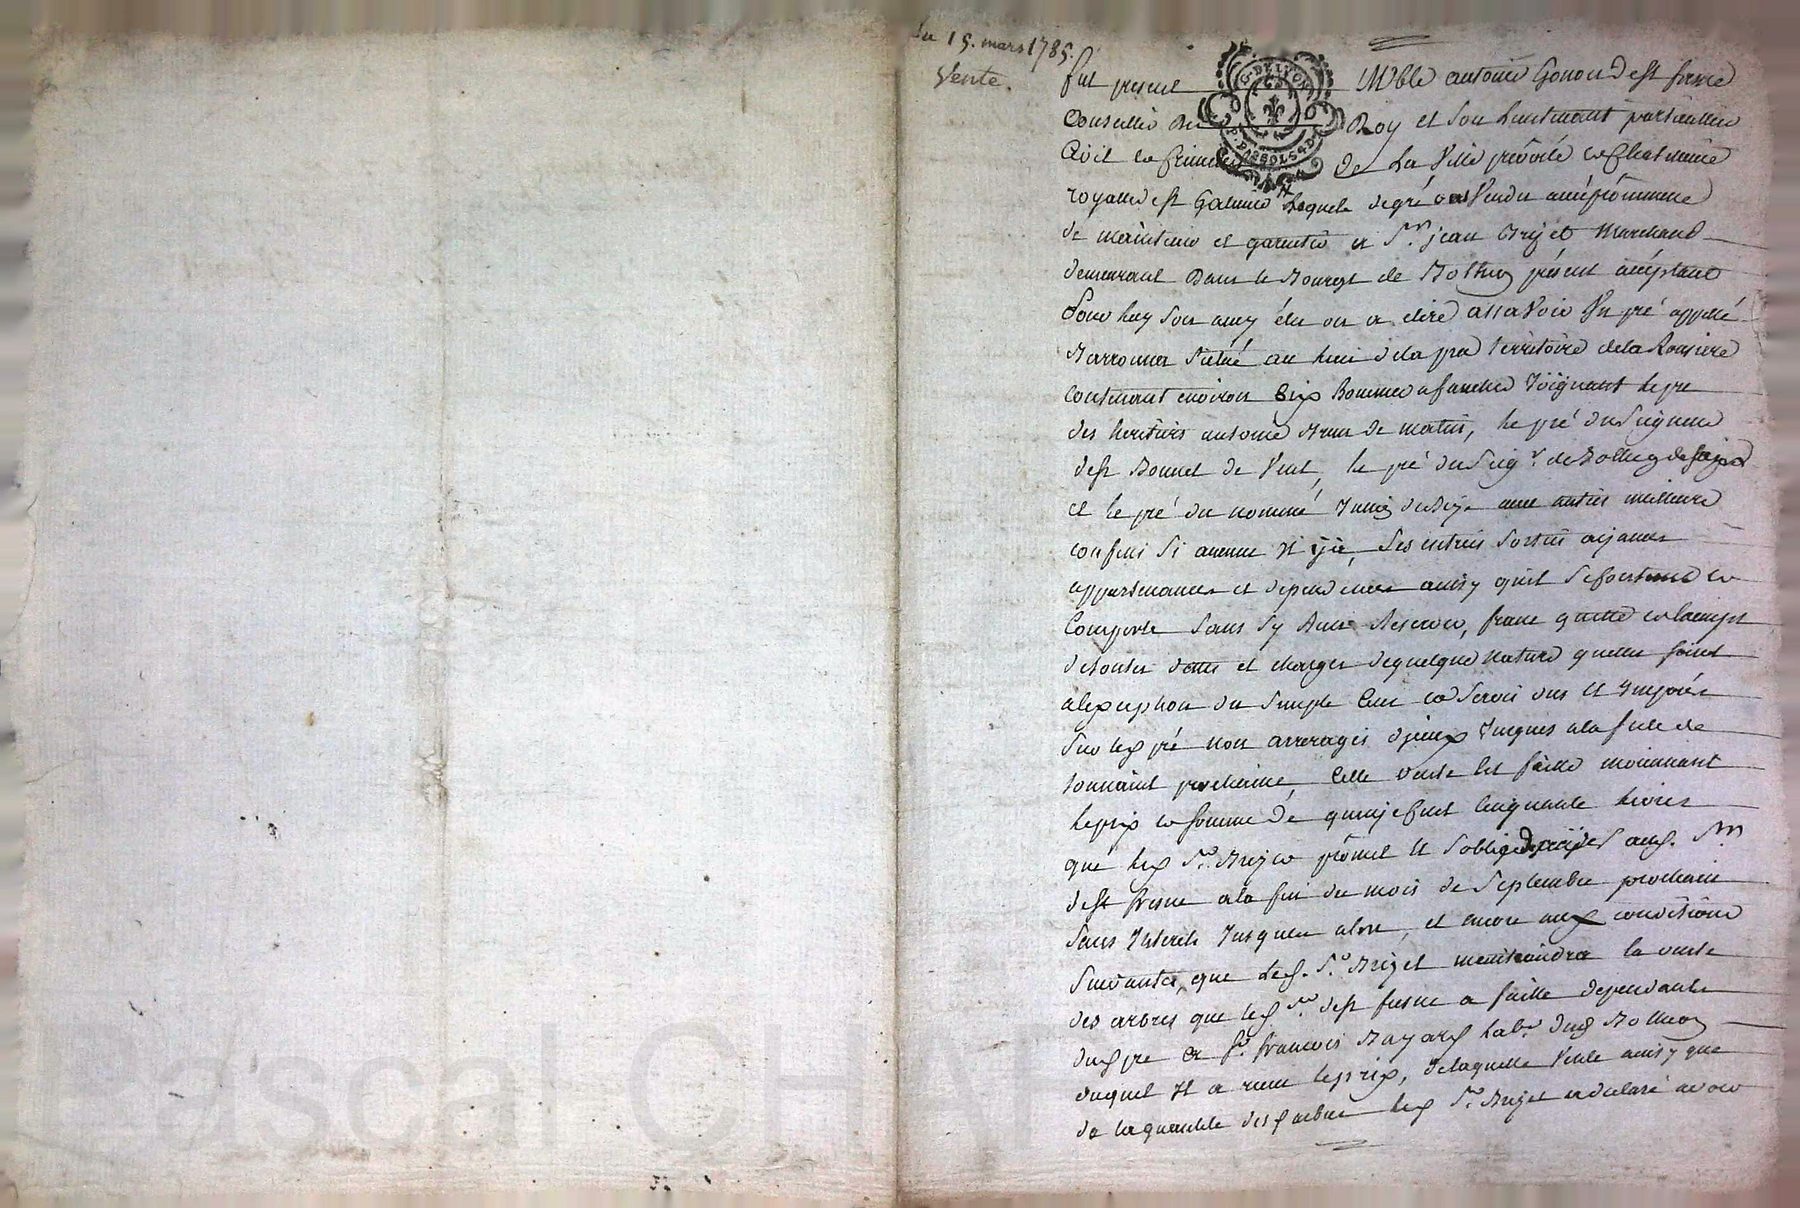 Du 15. mars 1785.
Vente.
G. DE LYON
fut present Noble antoine Gonon de st fresne
Conseiller du Roy et son Lieutenant particulier
Civil et Criminel de La Ville prévôté et Chatelainie
royalle de st Galmier Lequel de gré a Vendu avec promesse
de maintenir et garentir a Sr. jean Brizet Marchand
demeurant dans le Bourg de Bothéon présent acceptant
pour luy son amy élu ou a elire assavoir Un pré appellé
situé au lieu de la territoire de la Rousiere
Contenant environ Six hommes a faucher Joignant le pré
des heritiers antoine de matin, le pré du Seigneur
de st Bonnet de Vent, le pré du Seigr. de Bothéon de soir
et le pré du nommé de bize avec autres meilleurs
confins si aucuns il y a, ses entrées sorties aizances
appartenances et dependances ainsy quil se form et
Comporte sans sy rien Reserver, franc quitte
de toutes dettes et charges de quelque Nature quelles soient
a lexception du simple Cens et Servis dus et Imposés
sur led pré non arreragés Jusques a la fete de
toussaint prochaine, Cette vente est faitte moiennant
le prix et somme de quinze Cent Cinquante livres
que led Sr. Brizet promet et soblige aud. Sr.
de st fresne a la fin du mois de Septembre prochain
sans Interets Jusques alors, et encore aux conditions
suivantes, que led. Sr. Brizet maintiendra la vente
des arbres que led Sr. de st fresne a faitte dependants
dud pré a Sr. francois Bayard habt. dud Bothéon
duquel Il a recu le prix, de laquelle Vente ainsy que
de la quantité des arbres led Sr. Brizet a declaré avoir
Pascal CHA